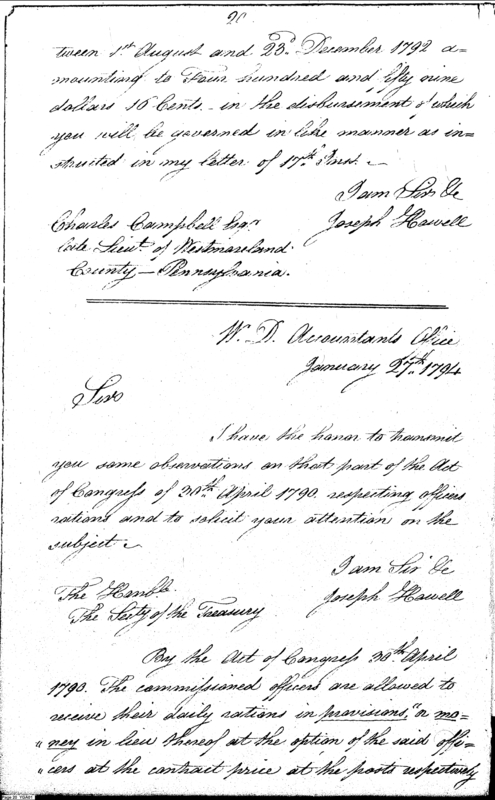 20
tween 1st August and 23d. December 1792 a=
mounting to Four hundred and fifty nine
dollars 16 Cents - in the disbursement of which
you will be governed in like manner as in=
structed in my letter of 17th Inst. -
I am Sir &c
Charles Campbell Esqr. Joseph Howell
late Lieut. of Westmoreland
County - Pennsylvania.
W. D. Accountants Office
January 27th 1794
Sir
I have the honor to transmit
you some observations on that part of the Act
of Congress of 30th April 1790. respecting officers
rations and to solicit your attention on the
subject -
I am Sir &c
The Honble. Joseph Howell
The Secty of the Treasury
By the Act of Congress 30th April
1790. The commissioned officers are allowed to
receive their daily rations in provisions, "or mo=
"ney in lieu thereof at the option of the said offi=
"cers at the contract price at the posts respectively